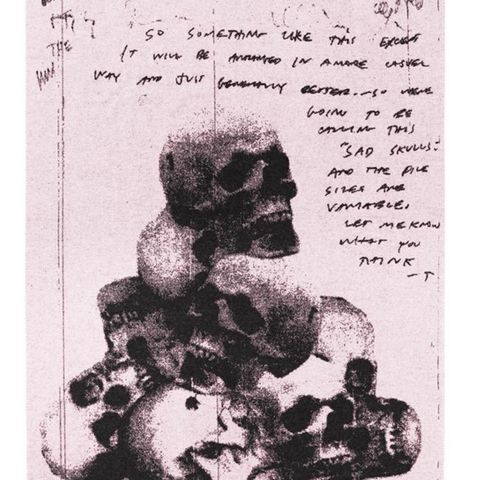 THE
SO SOMETHING LIKE THIS EXCEPT
IT WILL BE ARRANGED IN A MORE CASUAL
WAY AND JUST GENERALLY BETTER. SO WERE
GOING TO BE
CALLING THIS
"SAD SKULLS".
AND THE FILE
SIZES ARE
VARIABLE.
LET ME KNOW
WHAT YOU
THINK
-T